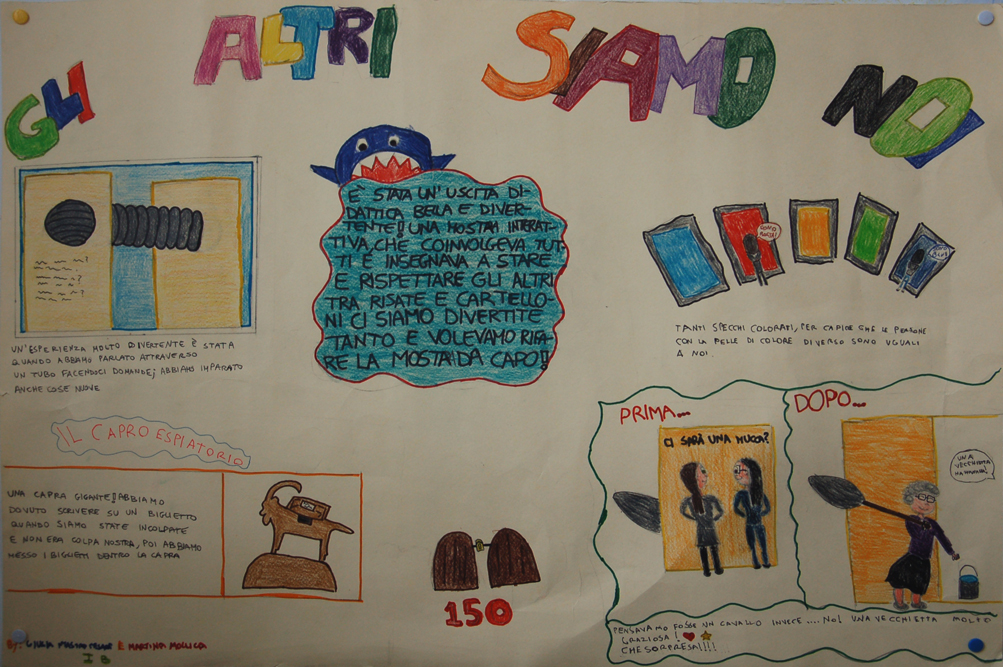 GLI ALTRI SIAMO NOI
È STATA UN'USCITA DI-
DATTICA BELLA E DIVER-
TENTE! UNA MOSTRA INTERAT-
TIVA, CHE COINVOLGEVA TUT-
TI E INSEGNAVA A STARE
E RISPETTARE GLI ALTRI
TRA RISATE E CARTELLO-
NI CI SIAMO DIVERTITE
TANTO E VOLEVAMO RIFA-
RE LA MOSTRA DA CAPO!
UN'ESPERIENZA MOLTO DIVERTENTE È STATA
QUANDO ABBIAMO PARLATO ATTRAVERSO
UN TUBO FACENDOCI DOMANDE; ABBIAMO IMPARATO
ANCHE COSE NUOVE
TANTI SPECCHI COLORATI, PER CAPIRE CHE LE PERSONE
CON LA PELLE DI COLORE DIVERSO SONO UGUALI
A NOI.
IL CAPRO ESPIATORIO
UNA CAPRA GIGANTE! ABBIAMO
DOVUTO SCRIVERE SU UN BIGLIETTO
QUANDO SIAMO STATE INCOLPATE
E NON ERA COLPA NOSTRA, POI ABBIAMO
MESSO I BIGLIETTI DENTRO LA CAPRA
150
PRIMA...
CI SARÀ UNA MUCCA?
DOPO...
UNA
VECCHIETTA
PENSAVAMO FOSSE UN CAVALLO INVECE .... NO! UNA VECCHIETTA MOLTO
GRAZIOSA!
CHE SORPRESA!!!!
By: E MARTINA MOLLICA
I B